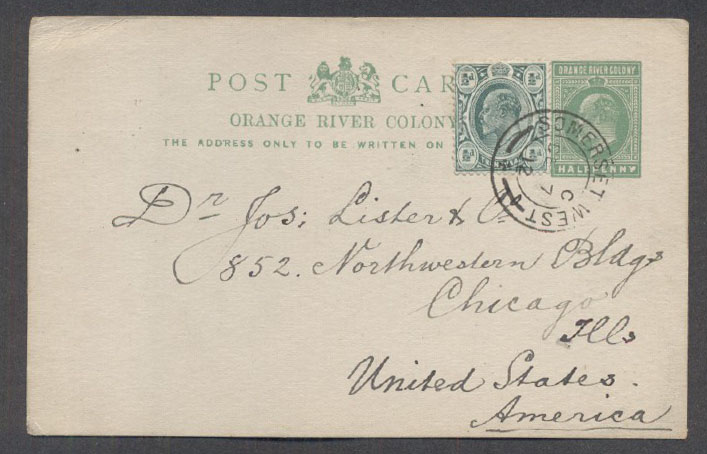 POST CAR
ORANGE RIVER COLONY
THE ADDRESS ONLY TO BE WRITTEN ON
½d ½d
½d ½d
ORANGE RIVER COLONY
HALFPENNY
SOMERSET WEST
Dr Jos; Lister & Co
852. Northwestern Bldg
Chicago
Ills
United States.
America